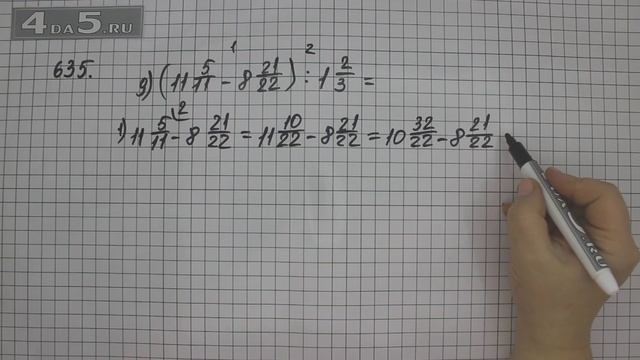 4DA5.RU
1 2
635. э) (11 5/11 - 8 21/22) : 1 2/3 =
2
1) 11 5/11 - 8 21/22 = 11 10/22 - 8 21/22 = 10 32/22 - 8 21/22